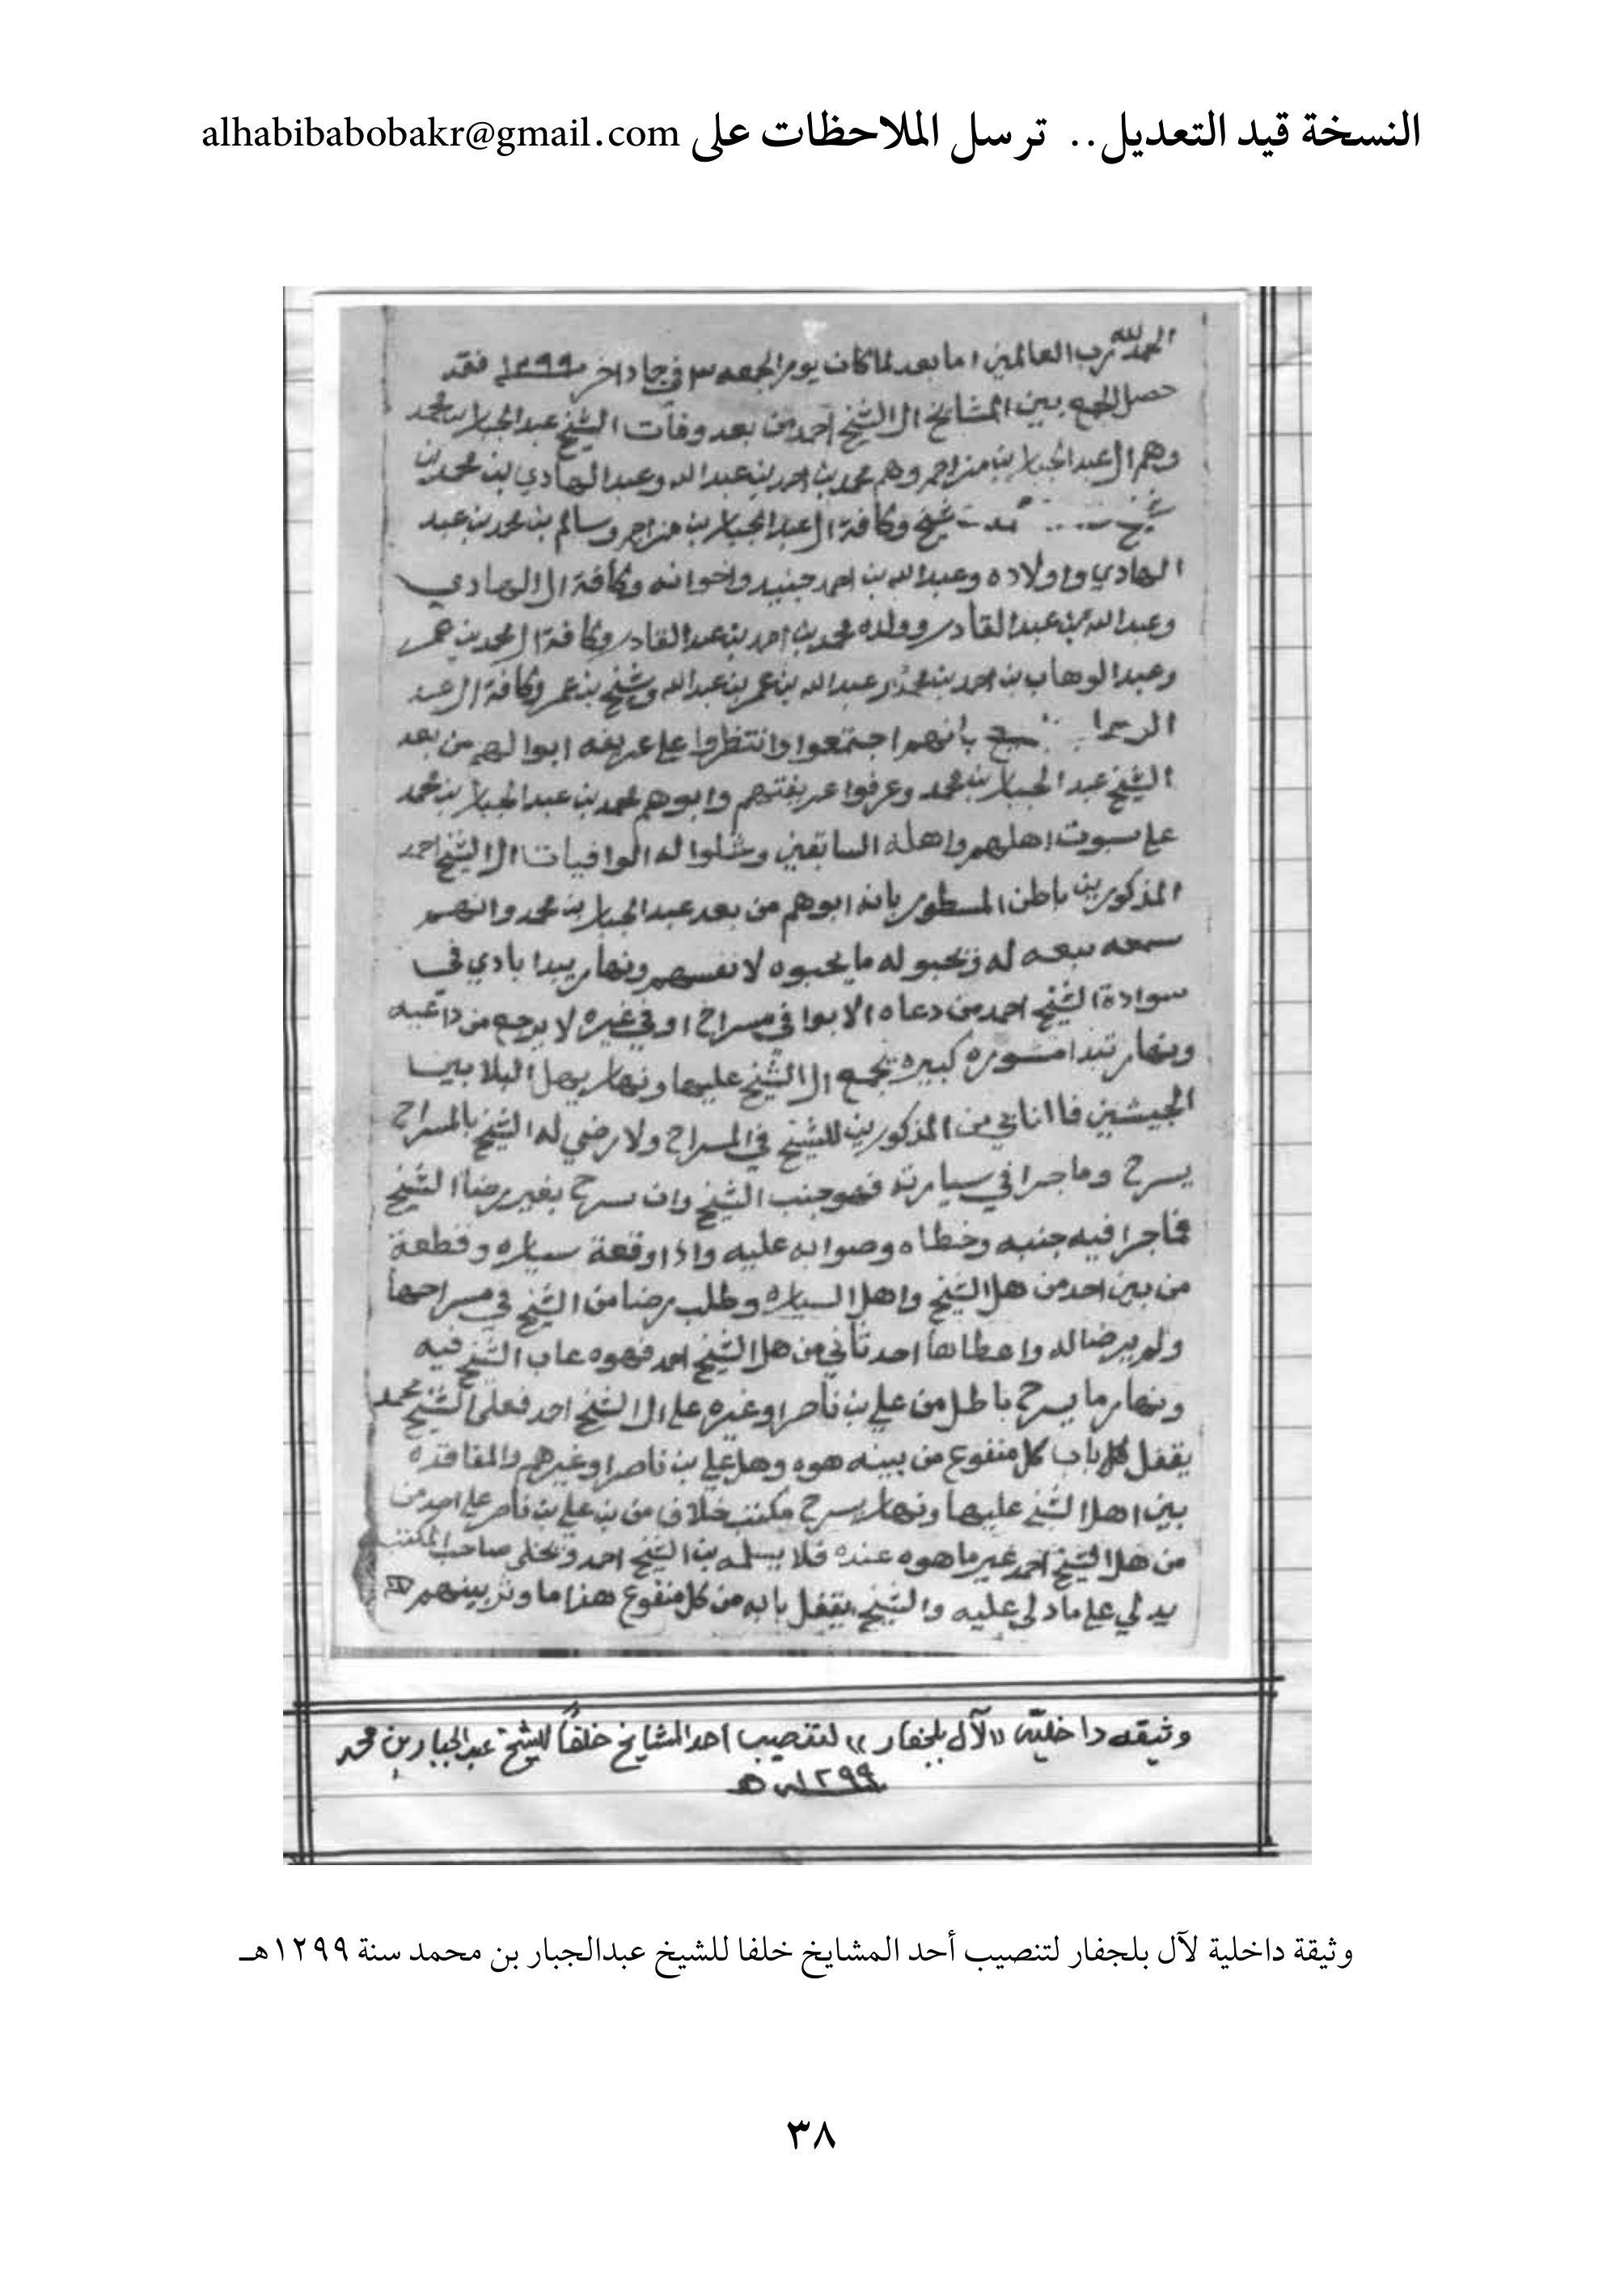 النسخة قيد التعديل.. ترسل الملاحظات على alhabibabobakr@gmail.com
الحمد لله رب العالمين اما بعد لما كان يوم الجمعه ٣ في جماد اخر ١٢٩٩ فقد
حصل الجمع بين المشايخ ال الشيخ احمد من بعد وفات الشيخ عبدالجبار بن محمد
وهم ال عبدالجبار بن مزاحم وهم محمد بن احمد بن عبدالله وعبدالهادي بن محمد بن
شيخ وكافة ال عبدالجبار بن مزاحم وسالم بن محمد بن عبد
الهادي واولاده وعبدالله بن احمد جنيد واخوانه وكافة ال الهادي
وعبدالله بن عبدالقادر وولده محمد بن احمد بن عبدالقادر وكافة ال محمد بن عمر
وعبدالوهاب بن احمد بن محمد عبدالله بن عمر بن عبدالله وشيخ بن عمر وكافة ال
بانهم اجتمعوا وانتظروا على عريفه ابوا لهم من بعد
الشيخ عبد الجبار بن محمد وعرفوا عريفتهم وابوهم محمد بن عبدالجبار بن محمد
على سبوت اهلهم واهله السابقين وشلوا له الوافيات ال الشيخ احمد
المذكورين باطن المسطور بانه ابوهم من بعد عبدالجبار بن محمد وانهم
سمعه تبعه له ونحبو له ما يحبوه لانفسهم ونهار يبدا بادي في
سوادة الشيخ احمد من دعاه الابوا في مسراح او في غيره لا يرجع من داعيه
ونهار تبدا مشوره كبيره تجمع ال الشيخ عليها ونهار يهل البلا بين
الجيشين فا اناني من المذكورين للشيخ في المسراح ولا رضي له الشيخ بالمسراح
يسرح وما جرا في سيارته فهو جنب الشيخ وان سرح بغير رضا الشيخ
فما جرا فيه جنبه وخطاه وصوابه عليه واذا وقعة سياره وقطعة
من بين احد من هل الشيخ واهل السياره وطلب رضا من الشيخ في مسراحها
ولم يرضا له واعطاها احد ثاني من هل الشيخ احمد فهوه عاب الشيخ فيه
ونهار ما يسرح باطل من علي بن ناصر او غيره على ال الشيخ احمد فعلى الشيخ محمد
يقفل كل باب كل منفوع من بينه هوه وهل علي بن ناصر او غيرهم والمقافده
بين اهل الشيخ عليها ونهار يسرح مكتب خلاف من بن علي بن ناصر على احد من
من هل الشيخ احمد غير ما هوه عنده فلا يسلمه بن الشيخ احمد ونخلى صاحب المكتب
يدلي على ما دلى عليه والشيخ يقفل بابه من كل منفوع هذا ما وثر بينهم
وثيقه داخليّه «لآل بلجفار» لتنصيب احد المشايخ خلفاً للشيخ عبدالجبار بن محمد
١٢٩٩ هـ
وثيقة داخلية لآل بلجفار لتنصيب أحد المشايخ خلفا للشيخ عبدالجبار بن محمد سنة ١٢٩٩هـ
٣٨